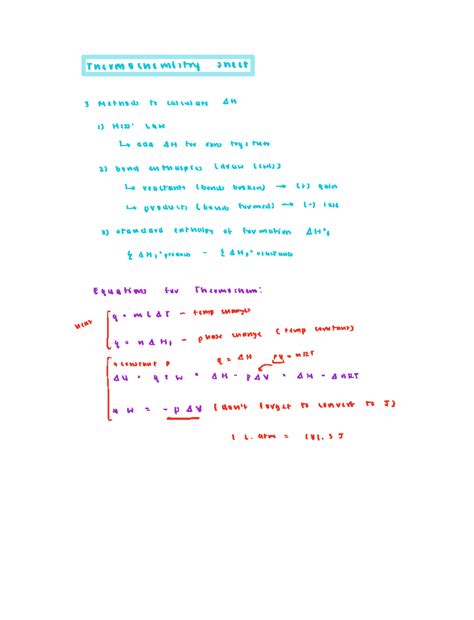 Thermochemistry Sheet
3 Methods to calculate ΔH
1) Hess' Law
↳ add ΔH for rxns together
2) bond enthalpies (draw
↳ reactants (bonds broken) → (+) gain
↳ products (bonds formed) → (-)
3) standard enthalpy of formation ΔH°f
Σ ΔHf° products - Σ ΔHf° reactants
Equations for Thermochem:
heat
q = mCΔT - temp changes
q = nΔHf - phase change (temp constant)
*constant p q = ΔH PV = nRT
ΔU = q + W = ΔH - pΔV = ΔH - ΔnRT
* W = -pΔV (don't forget to convert to J)
1 L.atm = 101.3 J